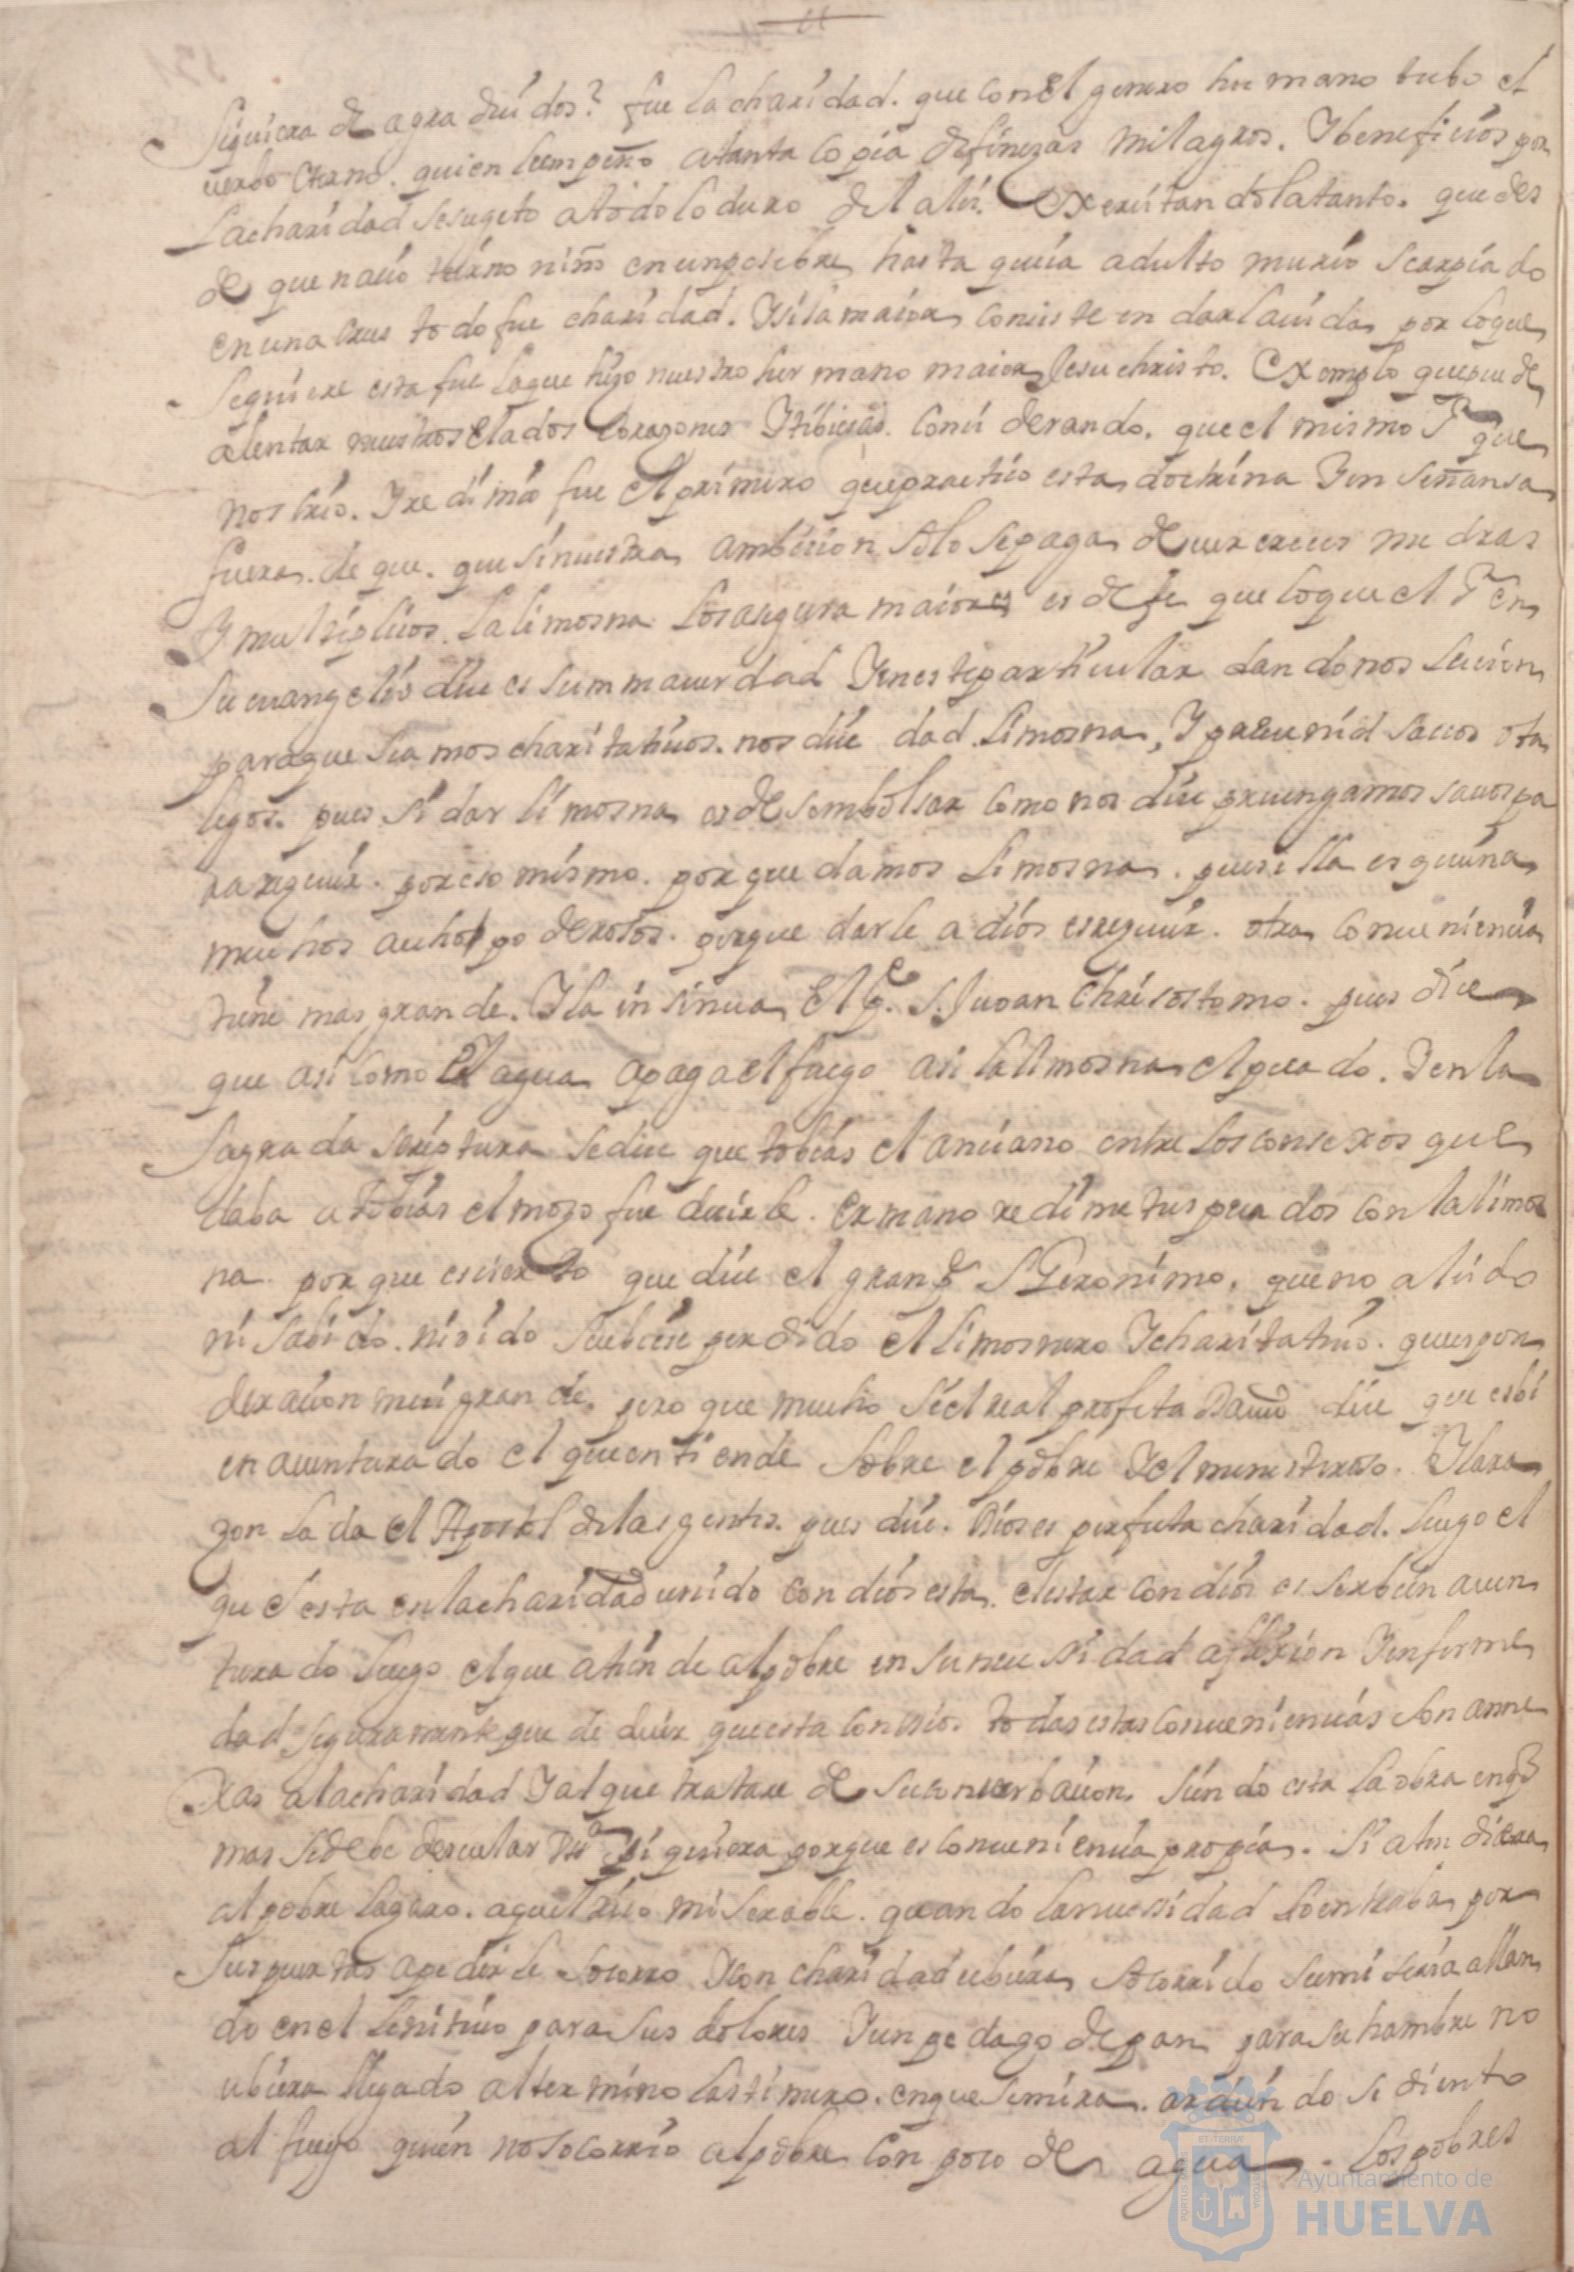 siquiera de agradecidos? fue la charidad. que con el genero humano tubo el
verbo eterno. quien le empeño a tanta copia de finezas milagros. Y beneficios por
la charidad se sugeto a todo lo duro del alis. exercitandola tanto. que des
de que nacio tierno niño en un pesebre hasta queia adulto murio scarpiado
en una crus todo fue charidad. Y si la maior consiste en dar la uida por lo que
se quiere esta fue la que hizo nuestro hermano maior Jesuchristo. Exemplo que puede
alentar nuestros elados corazones Y tibiesas. considerando. que el mismo Sr que
nos crio. Y redimio fue el primero que practico esta doctrina Y enseñansa
fuera. de que. que si nuestra ambicion solo se paga de uer creces medras
Y multiplicos. la limosna los asegura maiores es de fe que lo que el Sr en
su euangelio dice es summa uerdad Y en este particular dandonos lecion
para que seamos charitatiuos. nos dice dad limosna, Y preuenid sacos o ta
legos. pues si dar limosna es desembolsar como nos dice preuengamos sacos pa
ra reciuir. por eso mismo. porque damos limosna. pues ella es quien a
muchos a echo poderosos. porque darle a dios es reciuir. otra conueniencia
tiene mas grande. Y la insinua El Pe. S. Juan Chrisostomo. pues dice
que asi como El agua apaga el fuego asi la limosna el pecado. Y en la
sagrada scriptura se dice que tobias el anciano entre los consexos que
daba a tobias el mozo fue decirle. ermano redime tus pecados con la limos
na. porque es cierto que dice el gran Pe S Geronimo. que no a leido
ni sabido. ni oido se ubiese perdido el limosnero Y charitatiuo. que es pon
deracion mui grande. pero que mucho si el real profeta Dauid dice que es bi
enauenturado el que entiende sobre el pobre Y el menesteroso. Y la ra
zon la da el Apostol de las gentes. pues dice. Dios es perfecta charidad. luego el
que esta en la charidad unido con dios esta. el estar con dios es ser bien auen
turado luego el que atiende al pobre en su necessidad aflixion Y enferme
dad seguramente puede decir que esta con Dios. todas estas conueniencias son anne
xas a la charidad Y al que tratare de su conserbacion. siendo esta la obra en que
mas se debe descular siquiera porque es conueniencia propia. Si atendiera
al pobre lazaro. aquel rico miserable. quando la necessidad lo entraba por
sus puertas a pedirle socorro Y con charidad ubiera socorrido su miseria allan
do en el lenitiuo para sus dolores Y un pedazo de pan para su hambre no
ubiera llegado al termino lastimero. en que se mira. ardiendo sediento
al fuego quien no socorrio al pobre con poco de agua. los pobres
Ayuntamiento de
HUELVA